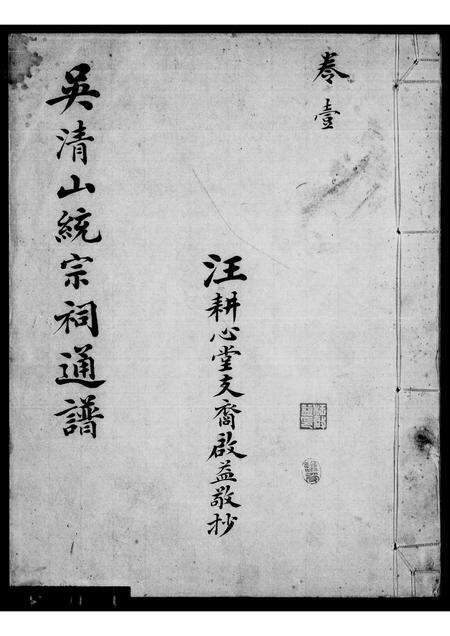 卷壹
汪耕心堂支裔啟益敬抄
吳清山統宗祠通譜